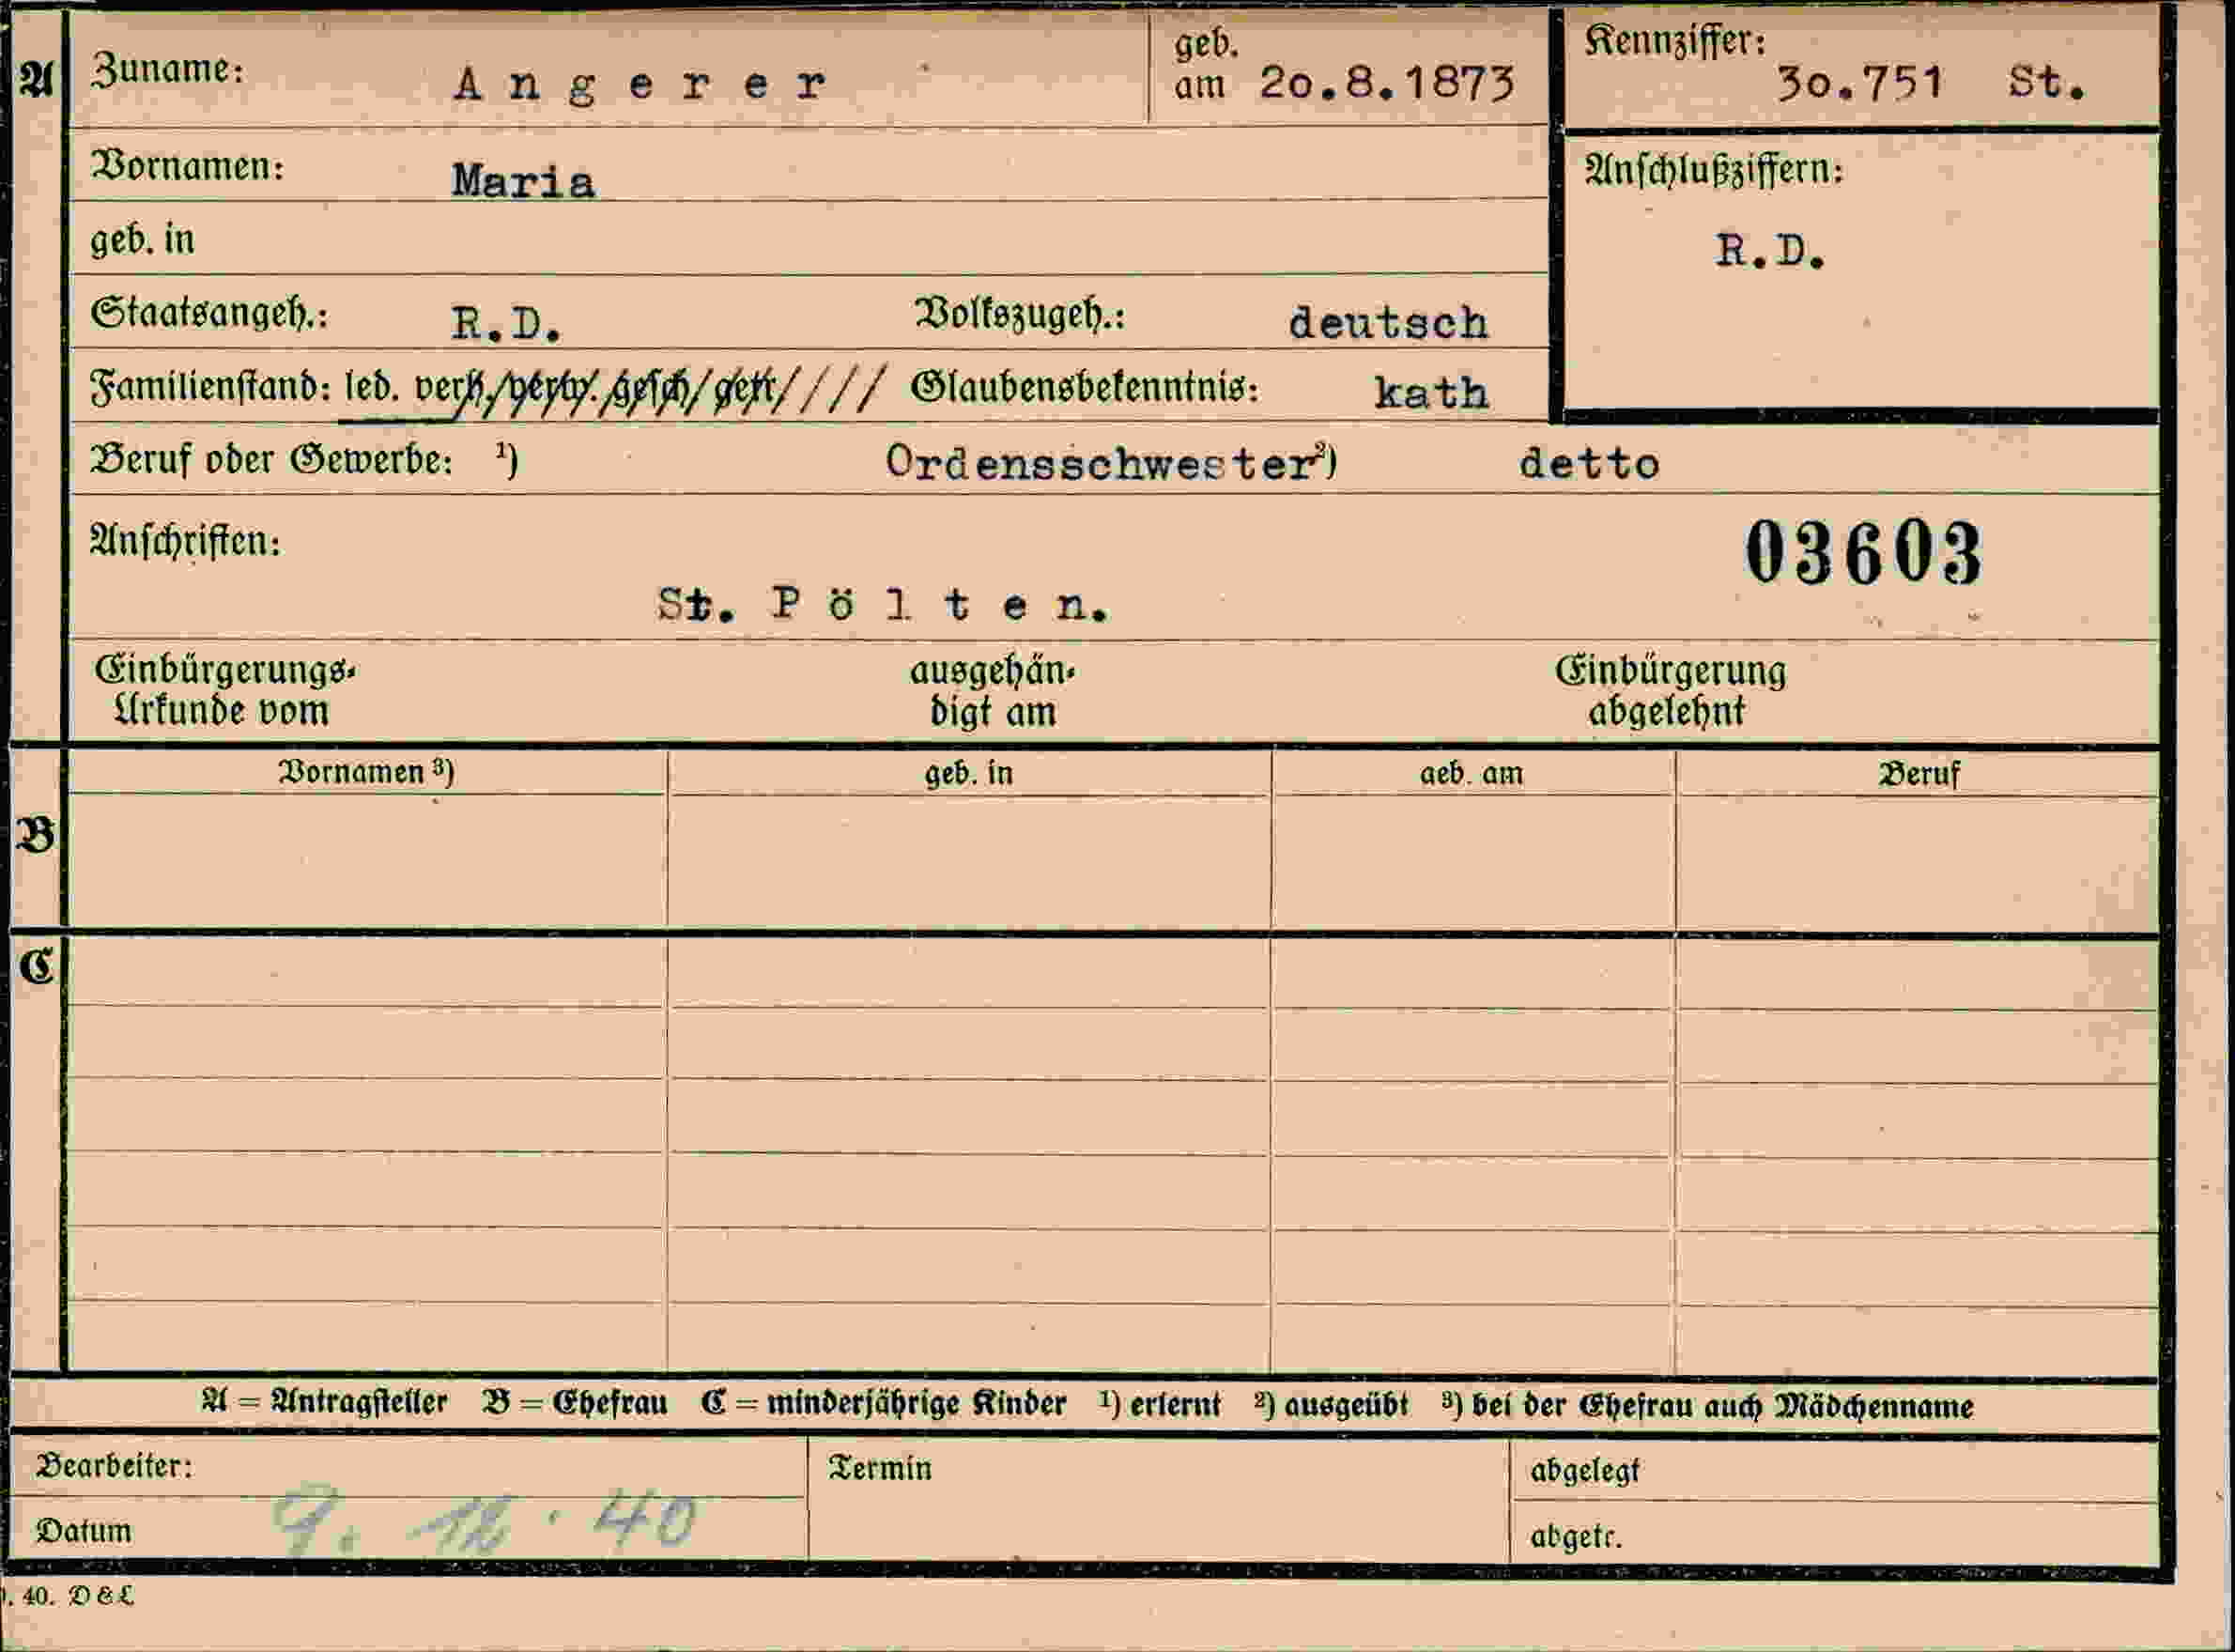 A Zuname: Angerer geb. am 20.8.1873 Kennziffer: 30.751 St.
Vornamen: Maria Anschlußziffern:
geb. in R.D.
Staatsangeh.: R.D. Volkszugeh.: deutsch
Familienstand: led. verh./verw./gesch/getr//// Glaubensbekenntnis: kath
Beruf oder Gewerbe: ¹) Ordensschwester ²) detto
Anschriften: 03603
St. Pölten.
Einbürgerungs- ausgehän- Einbürgerung
Urkunde vom digt am abgelehnt
Vornamen ³) geb. in geb. am Beruf
B
C
A = Antragsteller B = Ehefrau C = minderjährige Kinder ¹) erlernt ²) ausgeübt ³) bei der Ehefrau auch Mädchenname
Bearbeiter: Termin abgelegt
Datum 9. 12. 40 abgetr.
40. D & L